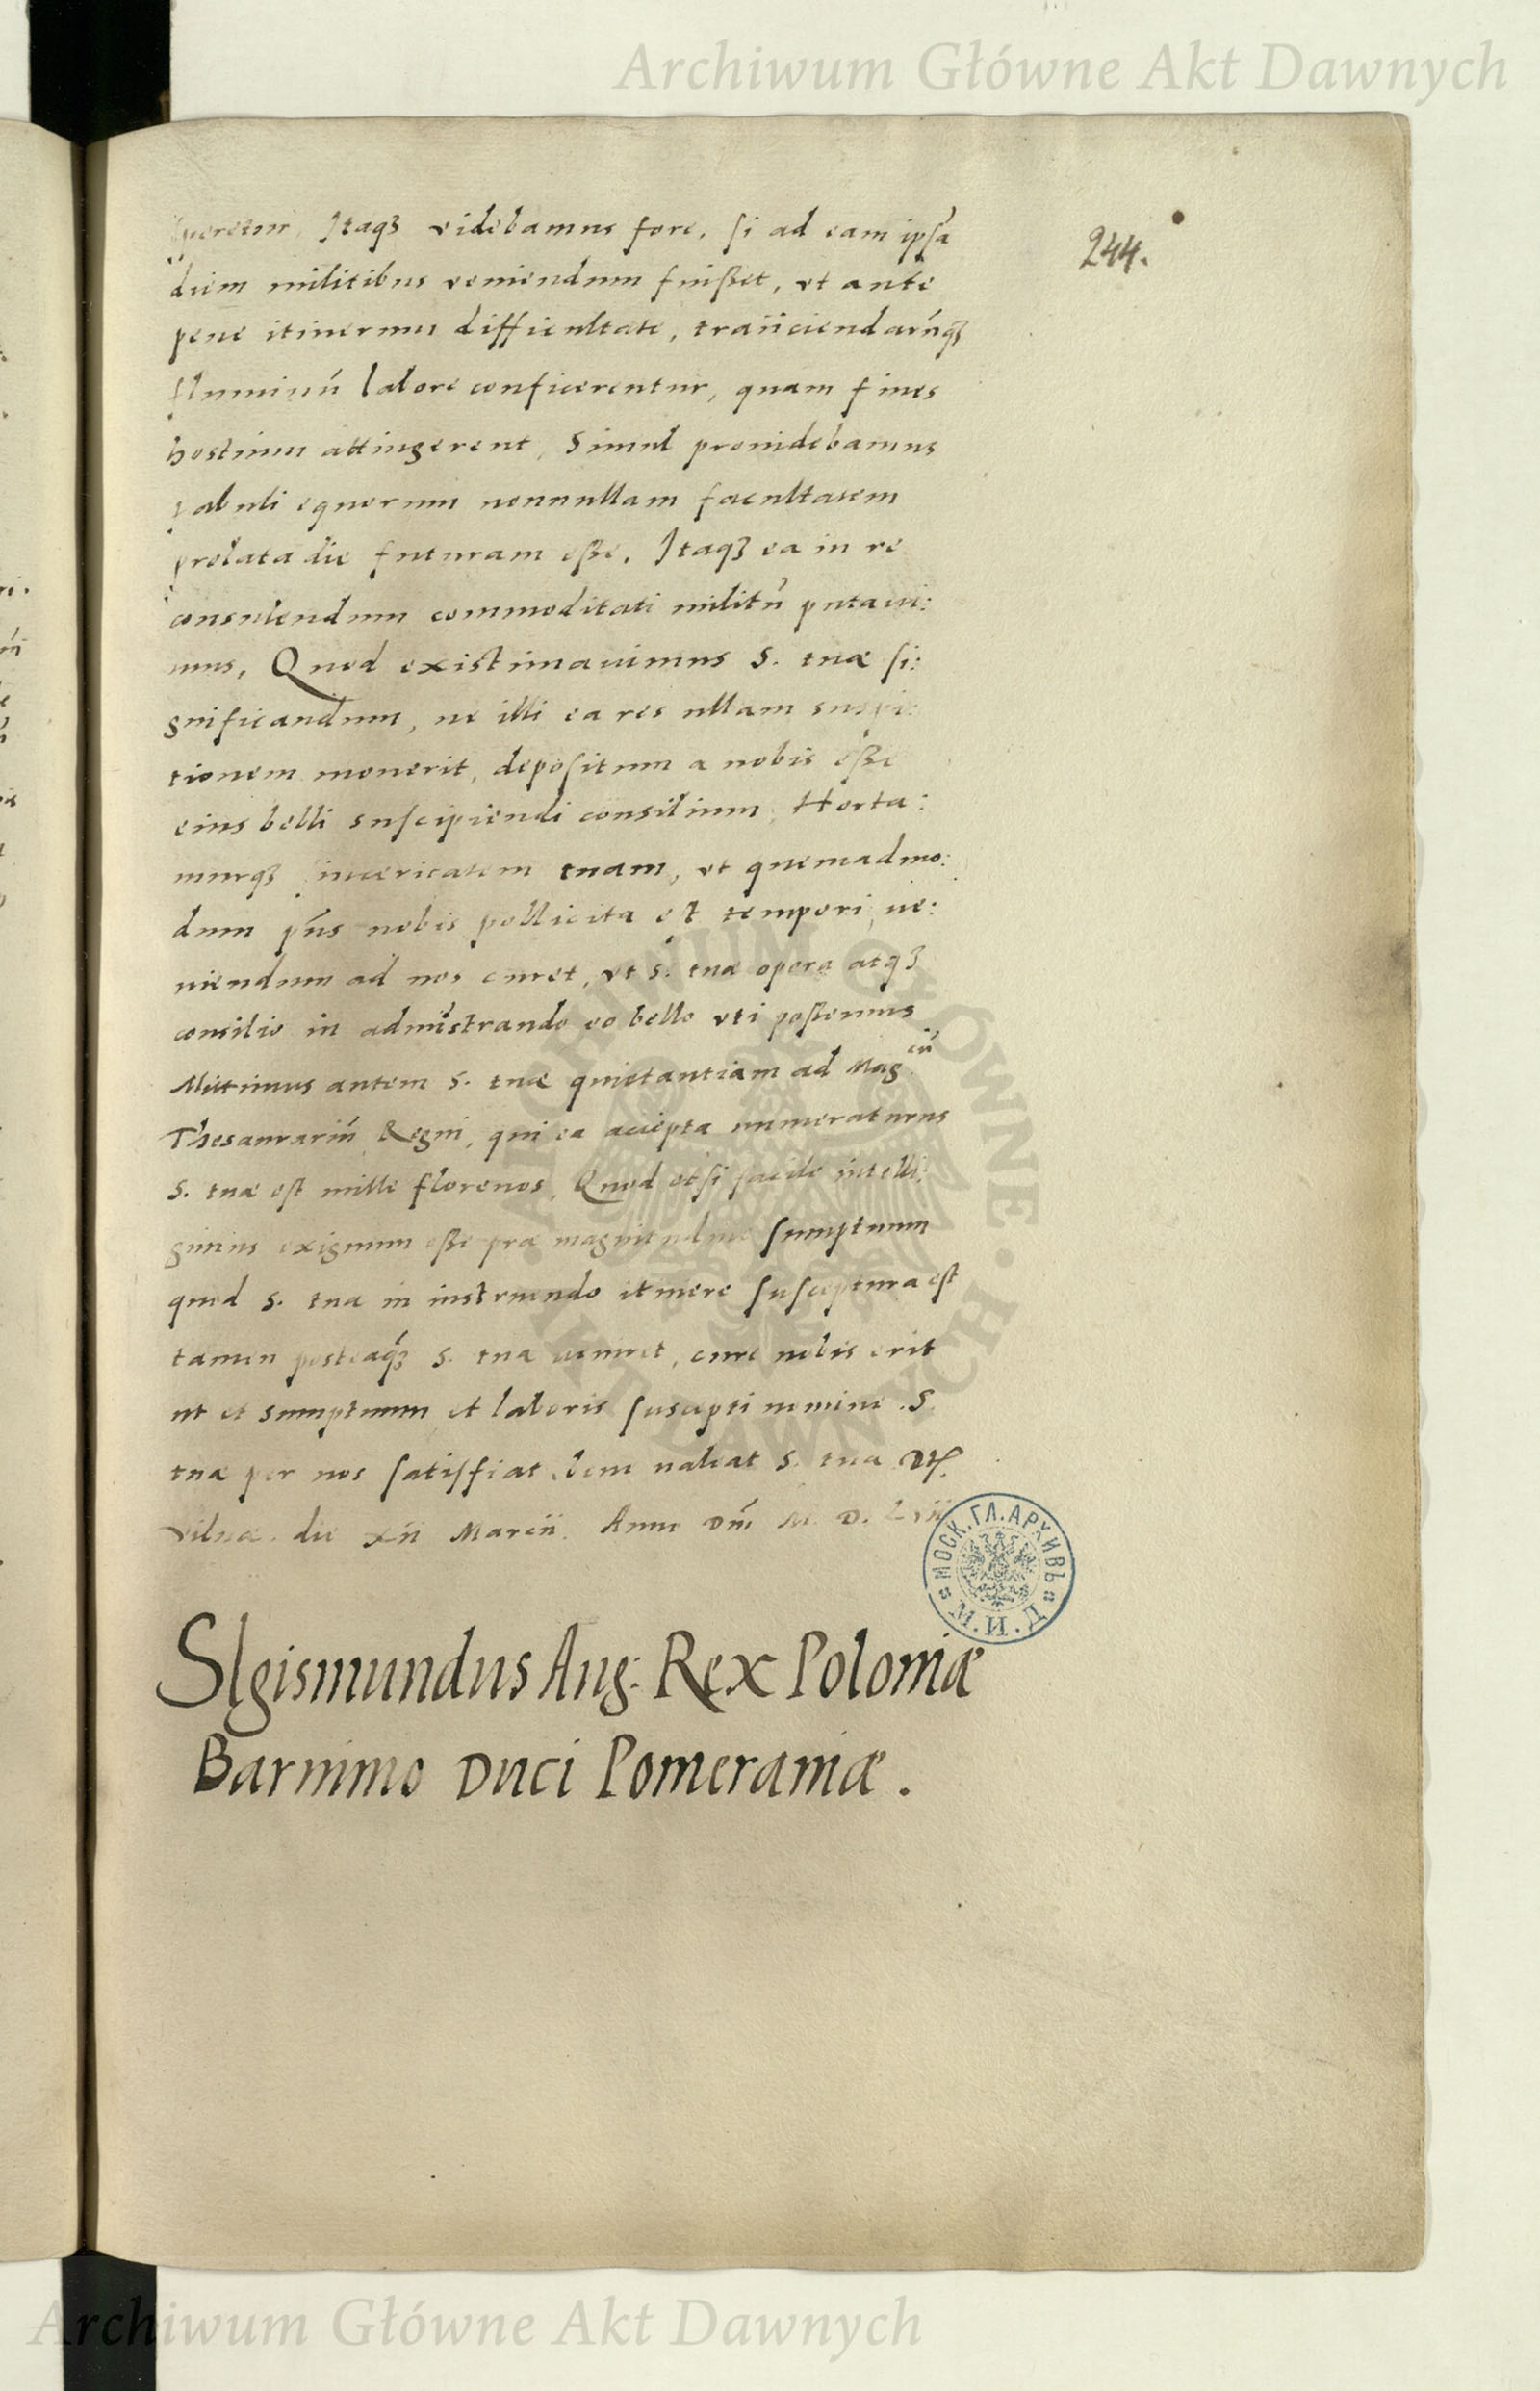 Archiwum Główne Akt Dawnych
244.
Itaqȝ videbamus fore, si ad eam ipsā
diem militibus veniendum fuisset, vt ante
pene itinerum difficultate, traiiciendarūqȝ
fluminū labore conficerentur, quam fines
hostium attingerent, Simul prouidebamus
pabuli equorum nonnullam facultatem
prolata die futuram esse. Itaqȝ ea in re
consulendum commoditati militū putaui:
mus, Quod existimauimus S. tuæ si:
gnificandum, ne illi ea res ullam suspi:
tionem mouerit, depositum a nobis esse
eius belli suscipiendi consilium, Horta:
murqȝ sinceritatem tuam, vt quemadmo:
dum pn̄s nobis pollicita est tempori, ue:
niendum ad nos curet, vt S. tuæ opera atqȝ
consilio in admīstrando eo bello vti possemus
Mittimus autem S. tuæ quietantiam ad Mag cū
Thesaurariū Regni, qui ea accepta numeraturus
S. tuæ est mille florenos, Quod etsi facile intelli:
gimus exiguum esse præ magnitudine sumptuum
quod S. tua in instruendo itinere susceptura est
tamen posteaqȝ S. tua uenerit, curæ nobis erit
ut et sumptuum et laboris suscepti nomine .S.
tuæ per nos satisfiat. bene ualeat S. tua
Vilnæ. die xii Marcii. Anno Dnī M. D. Lvii
SIgismundus Aug: Rex Poloniæ
Barnimo Duci Pomeraniæ.
МОСК. ГЛ. АРХИВЪ
М. И. Д.
ARCHIWUM GŁÓWNE
AKT DAWNYCH
Archiwum Główne Akt Dawnych